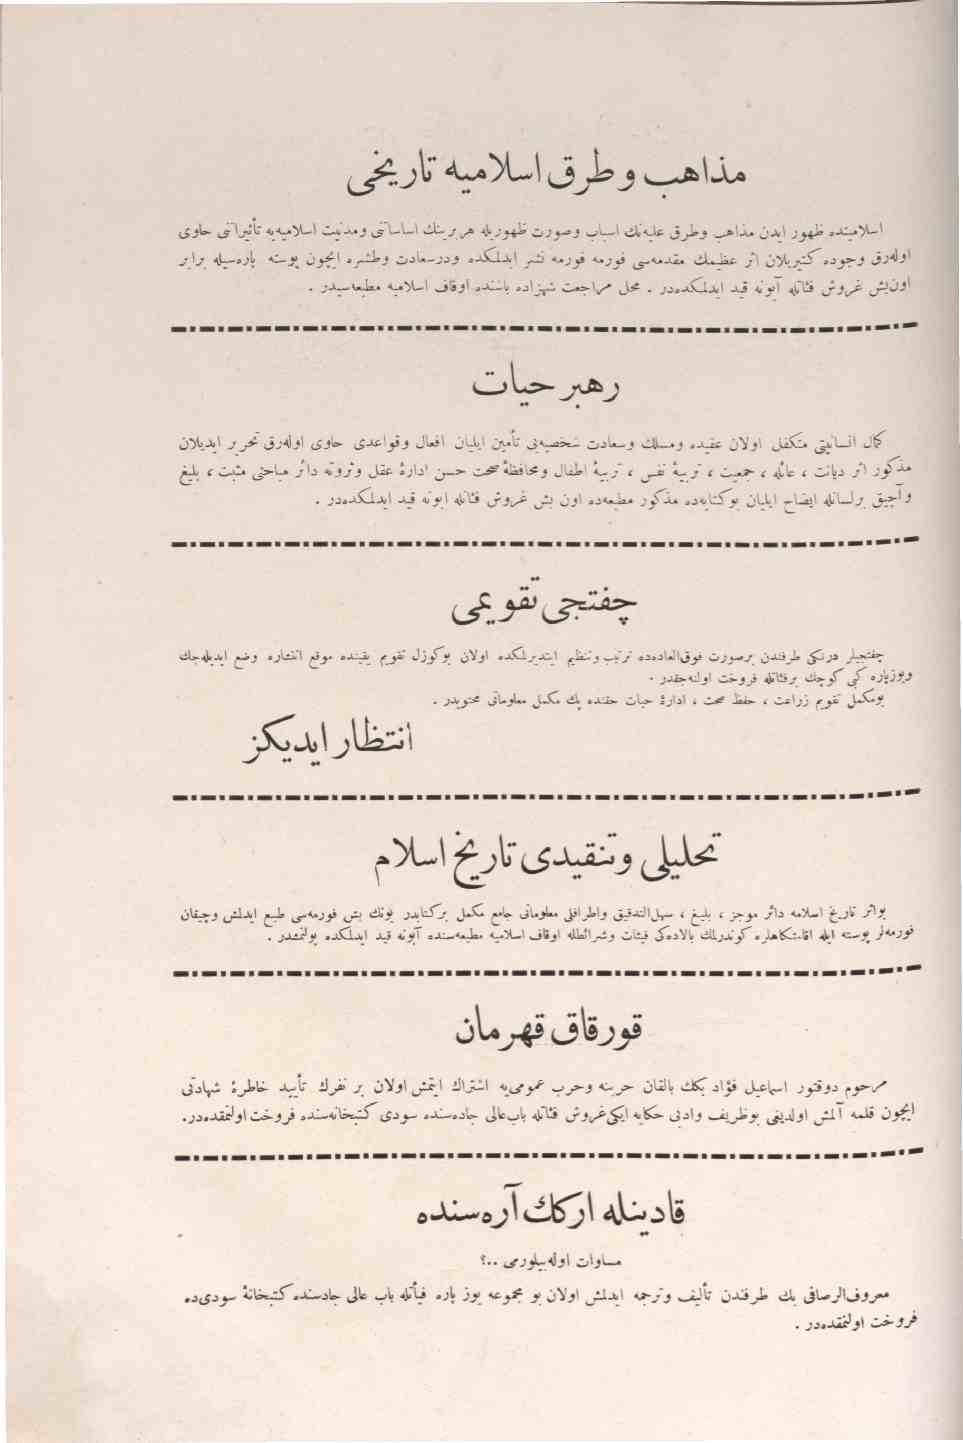 مذاهب و طرق اسلاميه تاريخى
اسلاميتده ظهور ايدن مذاهب وطرق عليه‌نك اسباب وصورت ظهوريله هر برينك اساساتنى ومدنيت اسلاميه‌يه تأثيراتنى حاوى
اوله‌رق وجوده كتيريلان اثر عظيمك مقدمه‌سى فورمه فورمه نشر ايدلمكده ودرسعادت وطشره ايچون پوسته پاره‌سيله برابر
اون‌بش غروش فئاتله آبونه قيد ايدلمكده‌در . محل مراجعت شهزاده باشنده اوقاف اسلاميه مطبعه‌سيدر .
رهبر حيات
كمال انسانيتى متكفل اولان عقيده ومسلك وسعادت شخصيه‌يى تأمين ايليان افعال وقواعدى حاوى اوله‌رق تحرير ايديلان
مذكور اثر ديانت ، عائله ، جمعيت ، تربيهٔ نفس ، تربيهٔ اطفال ومحافظهٔ صحت حسن ادارهٔ عقل وثروته دائر مباحثى مثبت ، بليغ
وآچيق برلسانله ايضاح ايليان بوكتابه‌ده مذكور مطبعه‌ده اون بش غروش فئاتله ابونه قيد ايدلمكده‌در .
چفتجى تقويمى
چفتجيلر درنكى طرفندن برصورت فوق‌العاده‌ده ترتيب وتنظيم ايتديرلمكده اولان بوكوزل تقويم يقينده موقع انتشاره وضع ايديله‌جك
ويوزپاره كبى كوچك برفئاتله فروخت اولنه‌جقدر .
بومكمل تقويم زراعت ، حفظ صحت ، ادارهٔ حيات حقنده پك مكمل معلوماتى محتويدر .
انتظار ايديكز
تحليلى وتنقيدى تاريخ اسلام
بواثر تاريخ اسلامه دائر موجز ، بليغ ، سهل‌التدقيق واطرافلى معلوماتى جامع مكمل بركتابدر بونك بش فورمه‌سى طبع ايدلمش وچيقان
فورمه‌لر پوسته ايله اقامتكاهلره كوندرلمك بالاده‌كى فيئات وشرائطله اوقاف اسلاميه مطبعه‌سنده آبونه قيد ايدلمكده بولنمشدر .
قورقاق قهرمان
مرحوم دوقتور اسماعيل فؤاد بكك بالقان حربنه وحرب عمومى‌يه اشتراك ايتمش اولان بر نفرك تأييد خاطرهٔ شهادتى
ايچون قلمه آلمش اولديغى بوظريف وادبى حكايه ايكى‌غروش فئاتله باب‌عالى جاده‌سنده سودى كتبخانه‌سنده فروخت اولنمقده‌در.
قادينله اركك آره‌سنده
مساوات اوله‌بيلورمى ..؟
معروف‌الرصافى بك طرفندن تأليف وترجمه ايدلمش اولان بو مجموعه يوز پاره فيأتله باب عالى جادسنده كتبخانهٔ سودى‌ده
فروخت اولنمقده‌در .